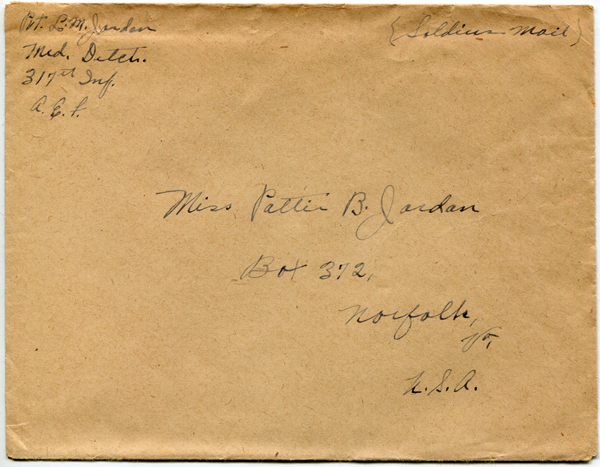 Pvt. L. M. Jordan
Med. Detch.
317th Inf.
A.E.F.
(Soldiers Mail)
Miss Pattie B. Jordan
Box 372,
Norfolk,
Va,
U.S.A.